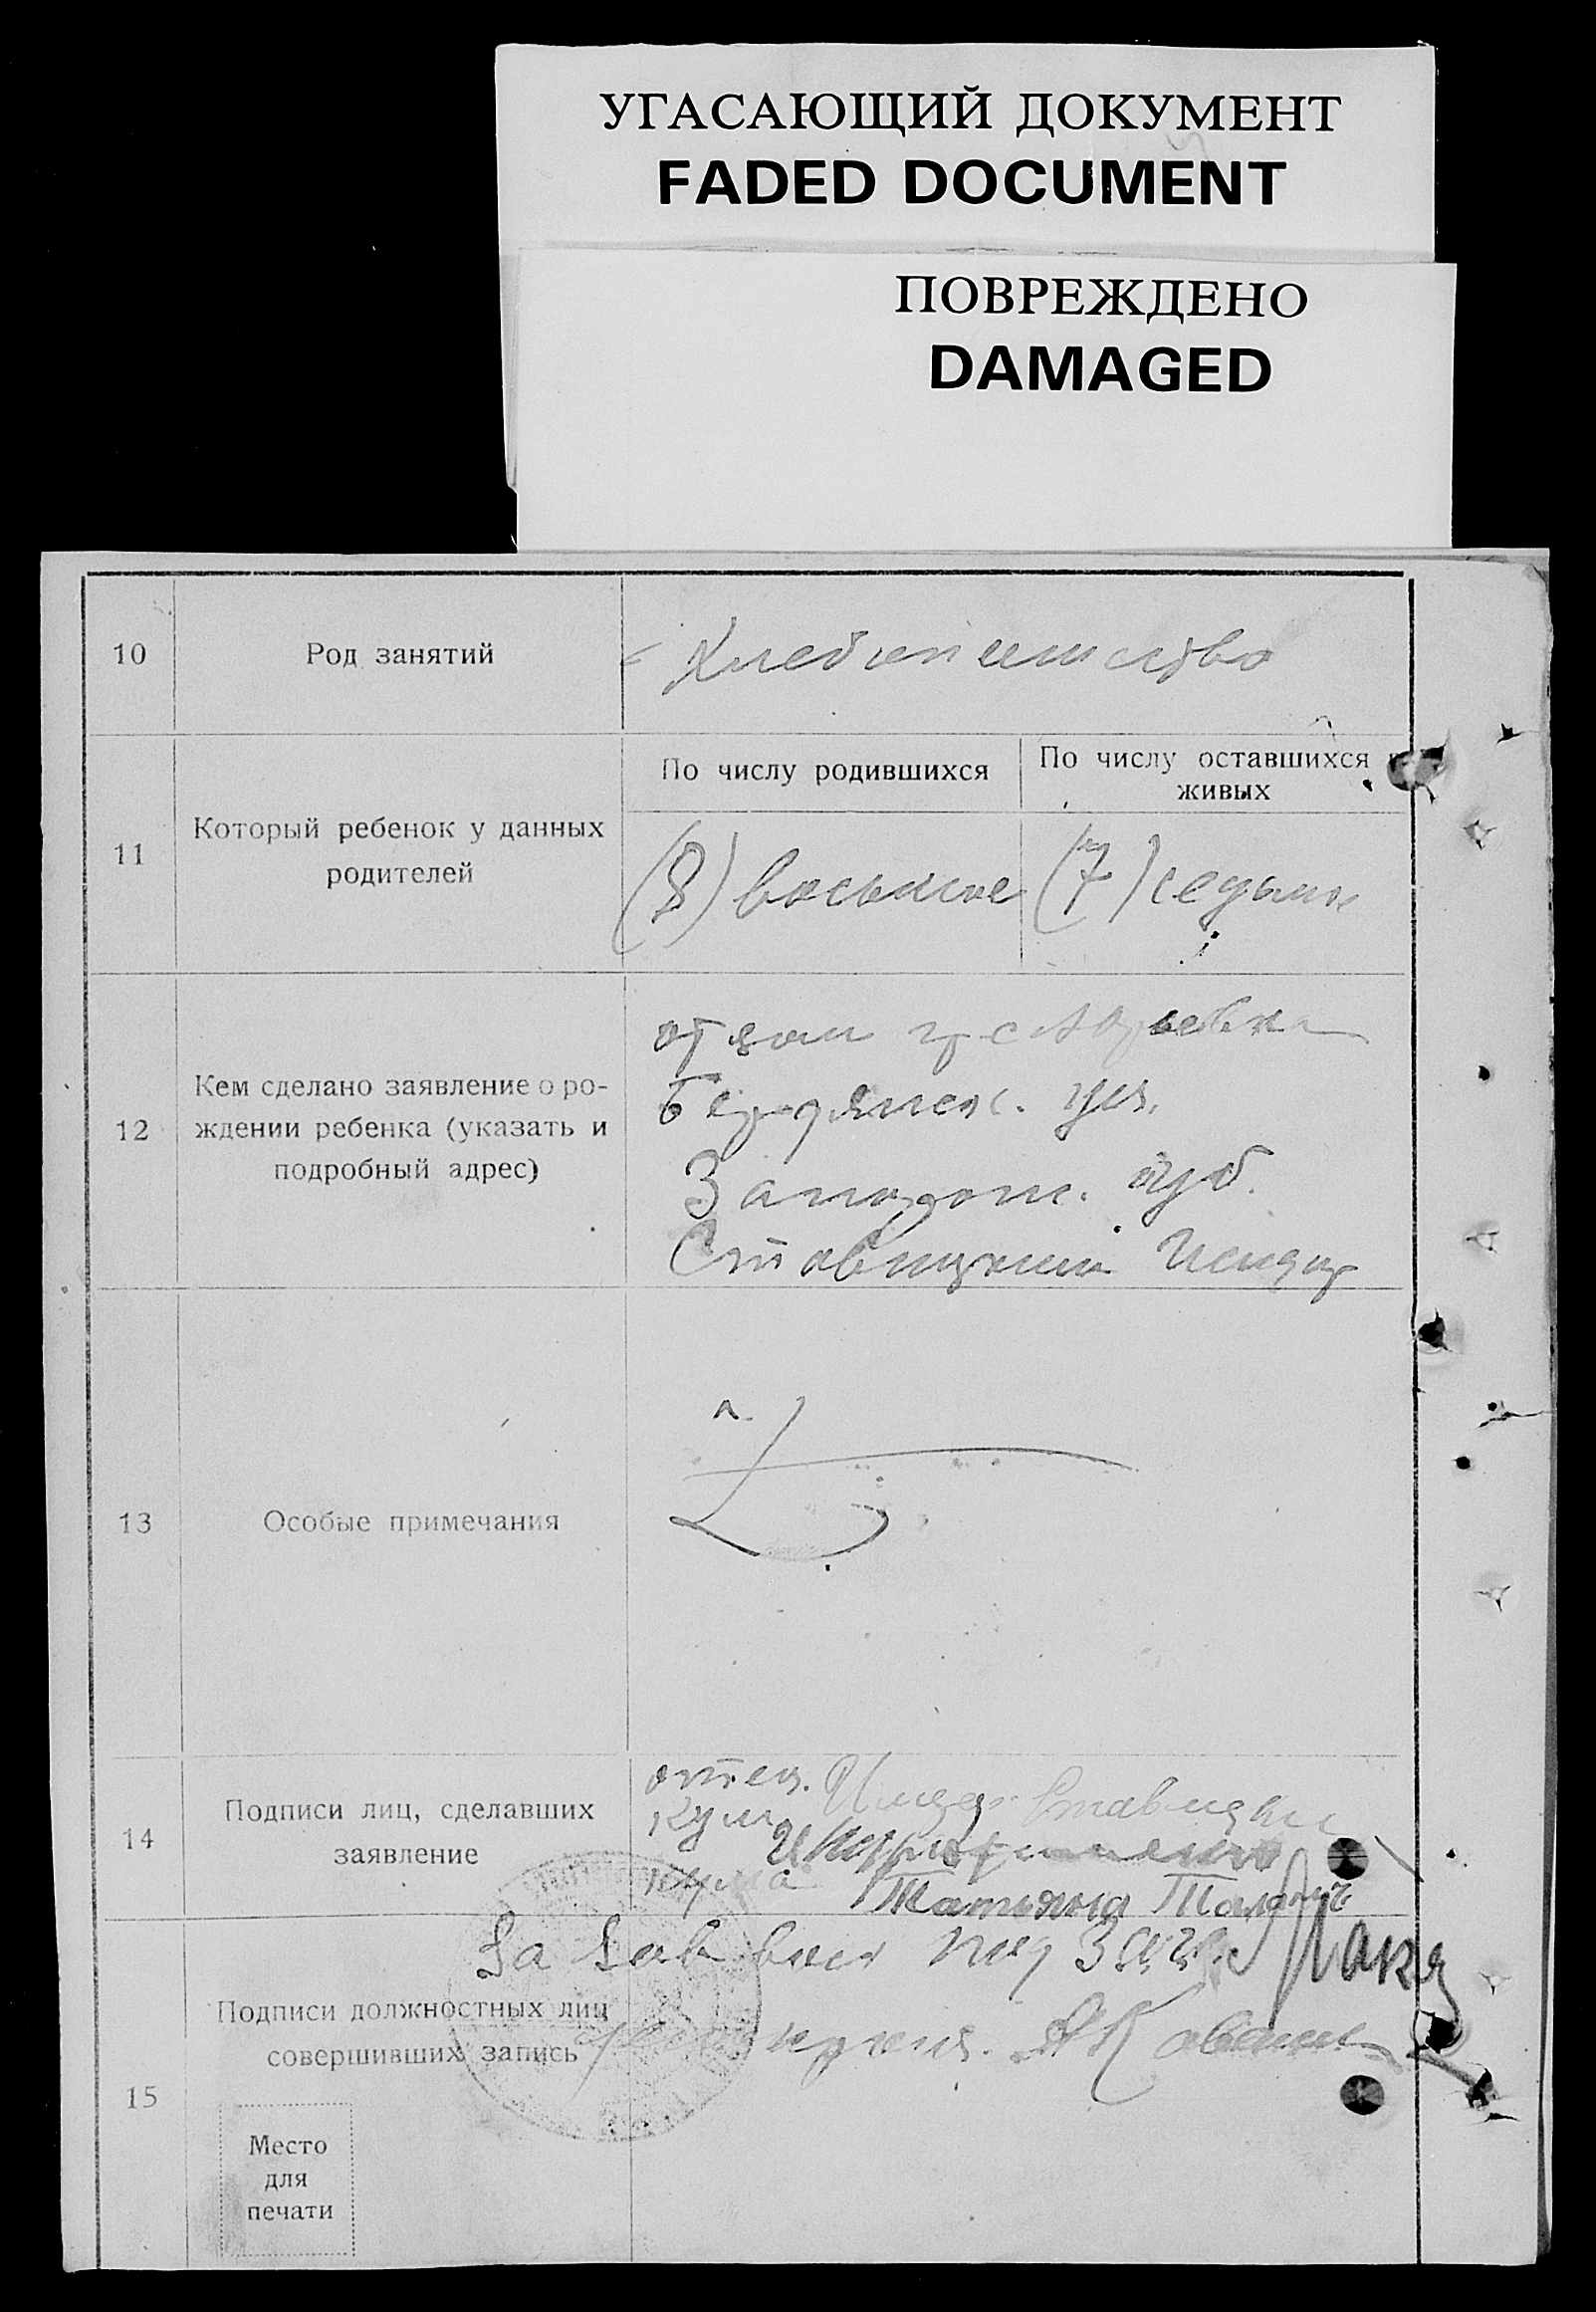 УГАСАЮЩИЙ ДОКУМЕНТ
FADED DOCUMENT
ПОВРЕЖДЕНО
DAMAGED
10
Род занятий
Хлебопашество
11
Который ребенок у данных
родителей
По числу родившихся
По числу оставшихся в
живых
(8) восьмое
(7) седьмое
12
Кем сделано заявление о ро-
ждении ребенка (указать и
подробный адрес)
отцом гр с
Бердянск. уез.
Запорож. губ.
Ставицкий Исидор
13
Особые примечания
14
Подписи лиц, сделавших
заявление
отец. Исидор Ставицкий
кум
кума Татьяна
15
Подписи должностных лиц
совершивших запись
За Зав
Место
для
печати